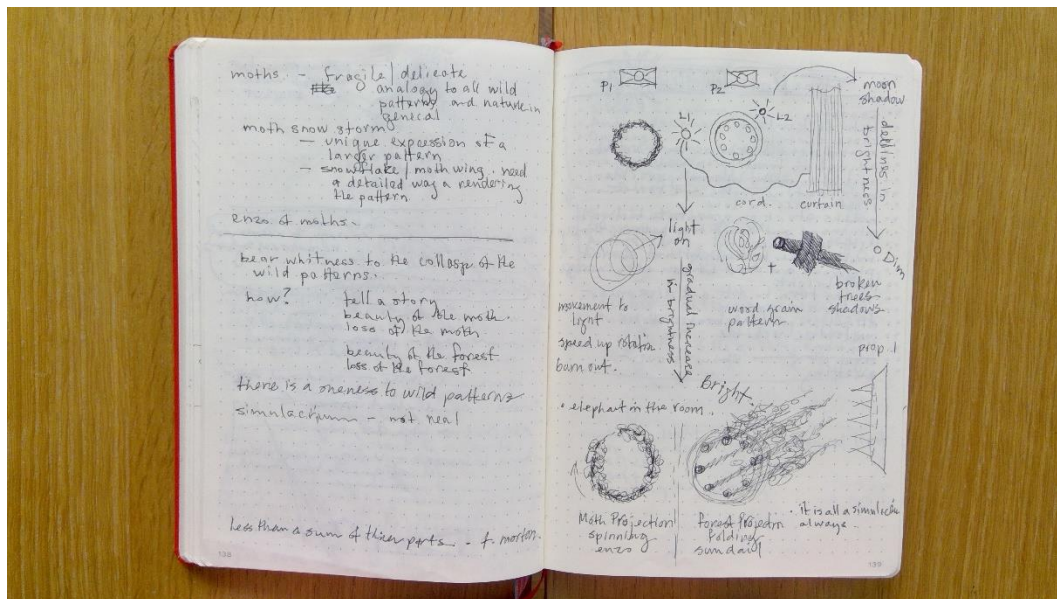 moths - fragile/delicate
analogy to all wild
patterns and nature in
general
moth snow storm
- unique expression of a
larger pattern
- snowflake/moth wing. need
a detailed way a rendering
the pattern
enzo of moths.
bear whitness to the collapse of the
wild patterns.
how? tell a story
beauty of the moth.
loss of the moth
beauty of the forest
loss of the forest
there is a oneness to wild patterns
simulacrum - not real
less than a sum of thier parts - t. morton.
138
P1
P2
L1
L2
moon
shadow
declines in
brightness
cord.
curtain
light
on
Dim
movement to
light
speed up rotation
burn out.
gradual increase
in brightness
wood grain
pattern
+
broken
trees
shadows
prop 1
Bright.
• elephant in the room.
Moth Projection
spinning
enzo
forest Projection
folding
sundail
• it is all a simulacra
always.
139